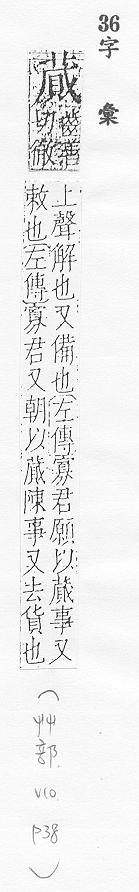 36
字彙
蕆
切徹
上聲解也又備也左傳寡君願以蕆事又
敕也左傳寡君又朝以蕆陳事又去貨也
（艸部 V10 P38）